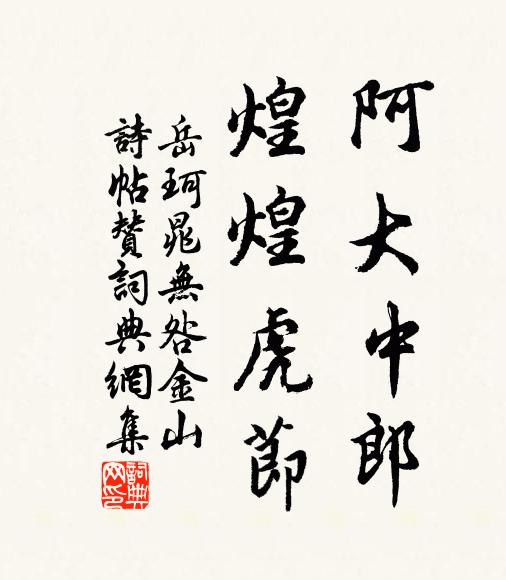 阿大中郎
煌煌虎節
岳珂晁無咎金山
詩帖贊詞典網集
詞典網印